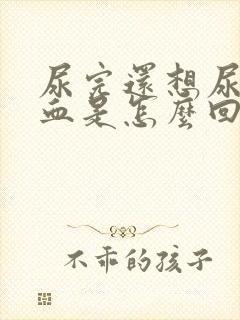 尿完還想尿
血是怎麼回
不乖的孩子